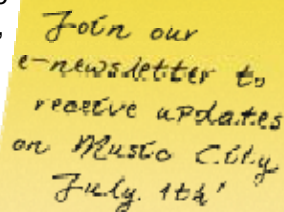 Join our
e-newsletter to
receive updates
on Music City
July. 4th'